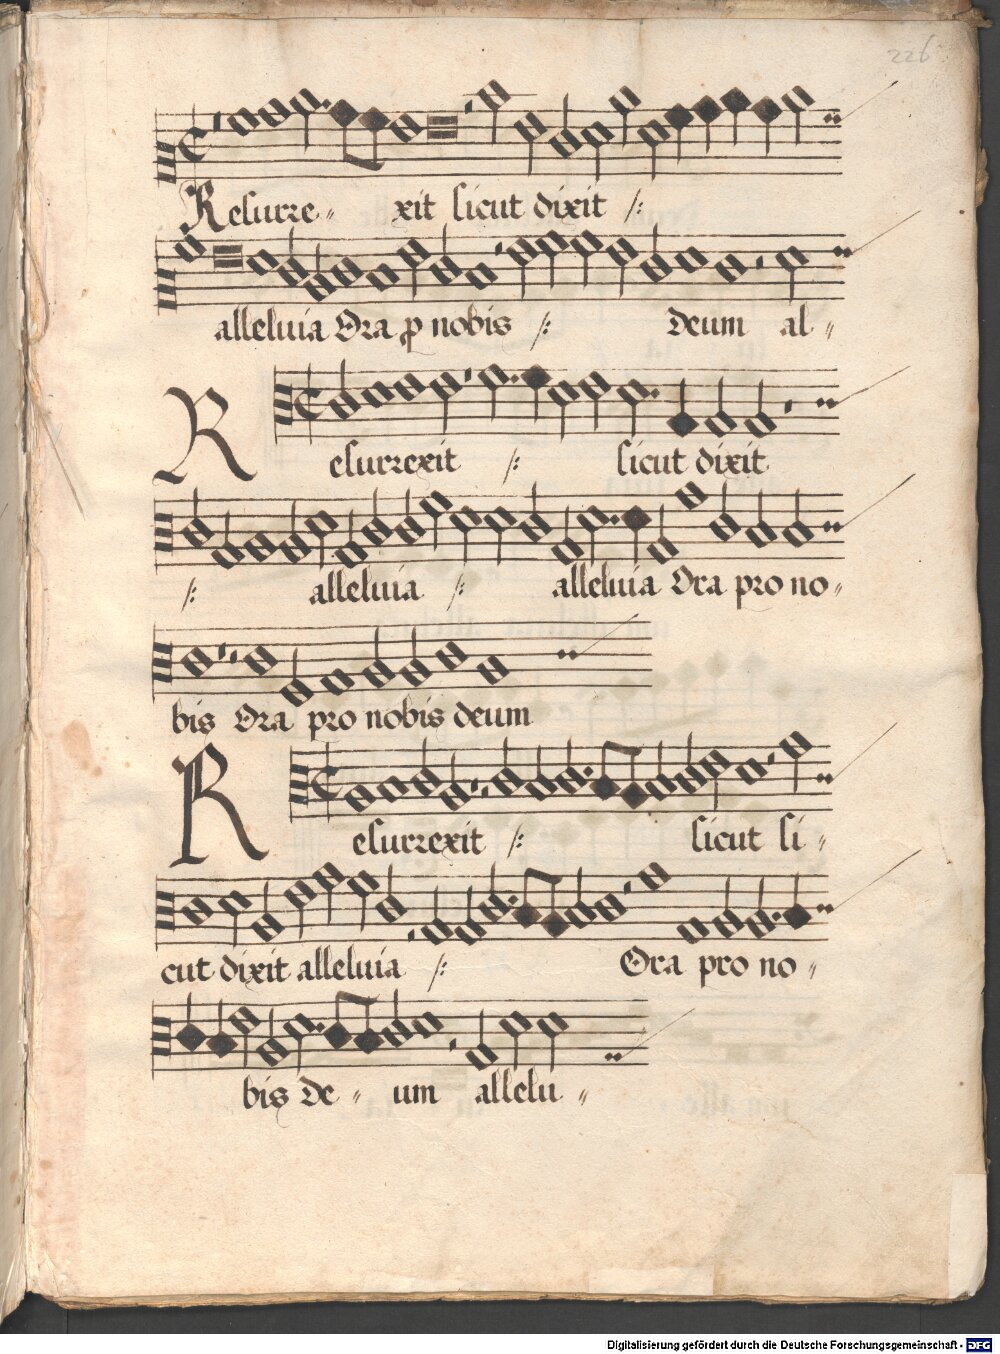 226
Resurre〃 xit sicut dixit :/:
alleluia Ora ꝓ nobis :/: deum al〃
Resurrexit :/: sicut dixit
:/: alleluia :/: alleluia Ora pro no〃
bis Ora pro nobis deum
Resurrexit :/: sicut si〃
cut dixit alleluia :/: Ora pro no〃
bis de〃 um allelu〃
Digitalisierung gefördert durch die Deutsche Forschungsgemeinschaft - DFG